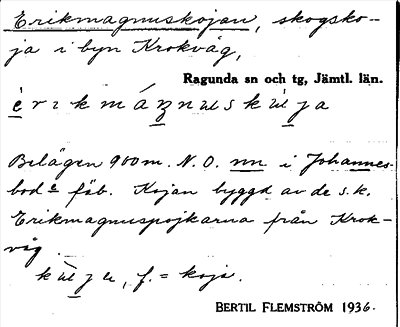 Erikmagnuskojan, skogsko-
ja i byn Krokvåg,
Ragunda sn och tg, Jämtl. län.
Belägen 900 m. N.O. om i Johannes-
bod fäb. Kojan byggd av de s.k.
Erikmagnuspojkarna från Krok-
våg.
f. = koja.
BERTIL FLEMSTRÖM 1936.